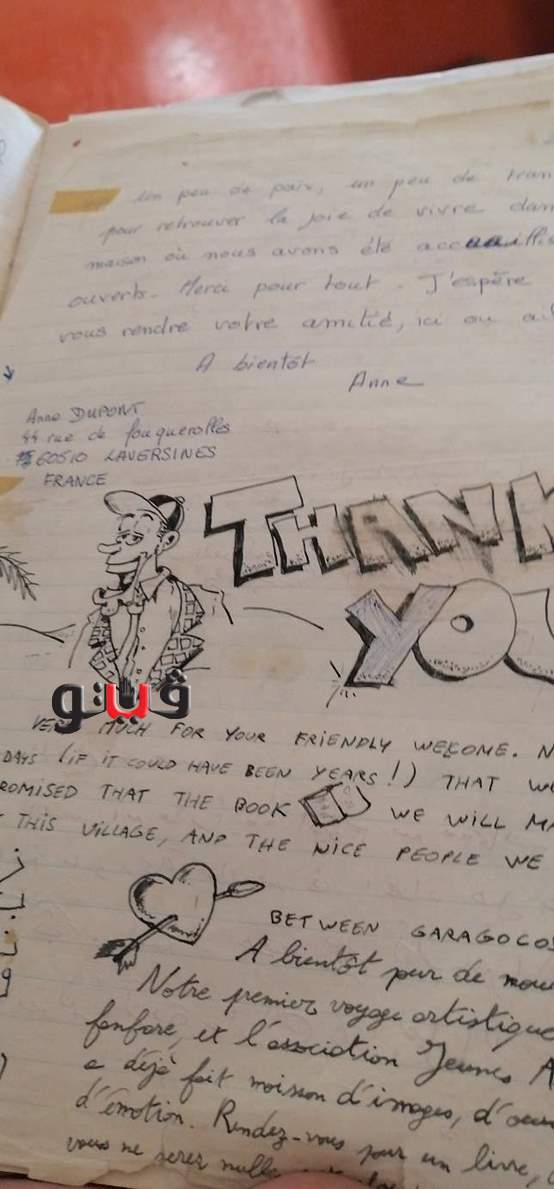 Un peu de paix, un peu de tran
pour retrouver la joie de vivre dan
maison où nous avons été accueillis
ouverts. Merci pour tout. J'espère
vous rendre votre amitié, ici ou ail
A bientôt
Anne
Anne DUPONT
44 rue de fouquerolles
60510 LAVERSINES
FRANCE
THANK
YOU
ڤيتو
VERY MUCH FOR YOUR FRIENDLY WELCOME. N
DAYS (IF IT COULD HAVE BEEN YEARS!) THAT W
ROMISED THAT THE BOOK WE WILL MA
THIS VILLAGE, AND THE NICE PEOPLE WE
BETWEEN GARAGOCOS
A bientôt pour de nouv
Notre premier voyage artistique
fanfare, et l'association Jeunes A
a déjà fait moisson d'images, d'
d'émotion. Rendez-vous pour un livre,
vous ne serez